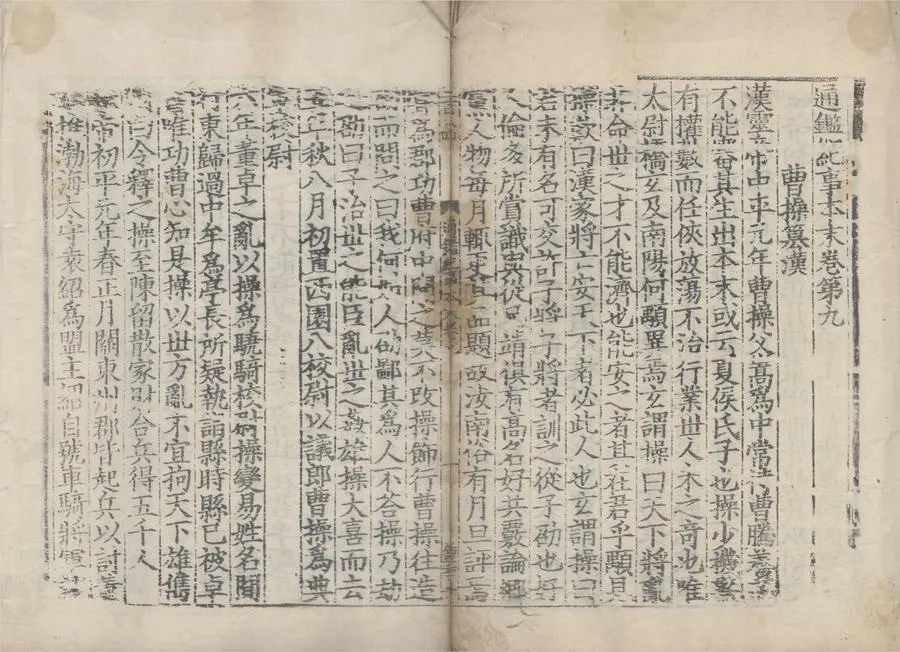 通鑑紀事本末卷第九
曹操篡漢
漢靈帝中平元年曹操父嵩爲中常侍曹騰養
不能審其生出本末或云夏侯氏子也操少機警
有權數而任俠放蕩不治行業世人未之奇也唯
太尉橋玄及南陽何顒異焉玄謂操曰天下將亂
非命世之才不能濟也能安之者其在君乎顒見
操歎曰漢家將亡安天下者必此人也玄謂操曰
君未有名可交許子將子將者訓之從子劭也好
人倫多所賞識與從兄靖俱有高名好共覈論鄉
黨人物每月輒更其品題故汝南俗有月旦評焉
通鑑紀事本末卷九
嘗爲郡功曹府中聞之莫不改操飾行曹操往造
劭而問之曰我何如人劭鄙其爲人不答操乃劫
之劭曰子治世之能臣亂世之姦雄操大喜而去
五年秋八月初置西園八校尉以議郎曹操爲典
軍校尉
六年董卓之亂以操爲驍騎校尉操變易姓名間
行東歸過中牟爲亭長所疑執詣縣時縣已被卓
書唯功曹心知是操以世方亂不宜拘天下雄儁
因白令釋之操至陳留散家財合兵得五千人
獻帝初平元年春正月關東州郡皆起兵以討董
卓推渤海太守袁紹爲盟主紹自號車騎將軍